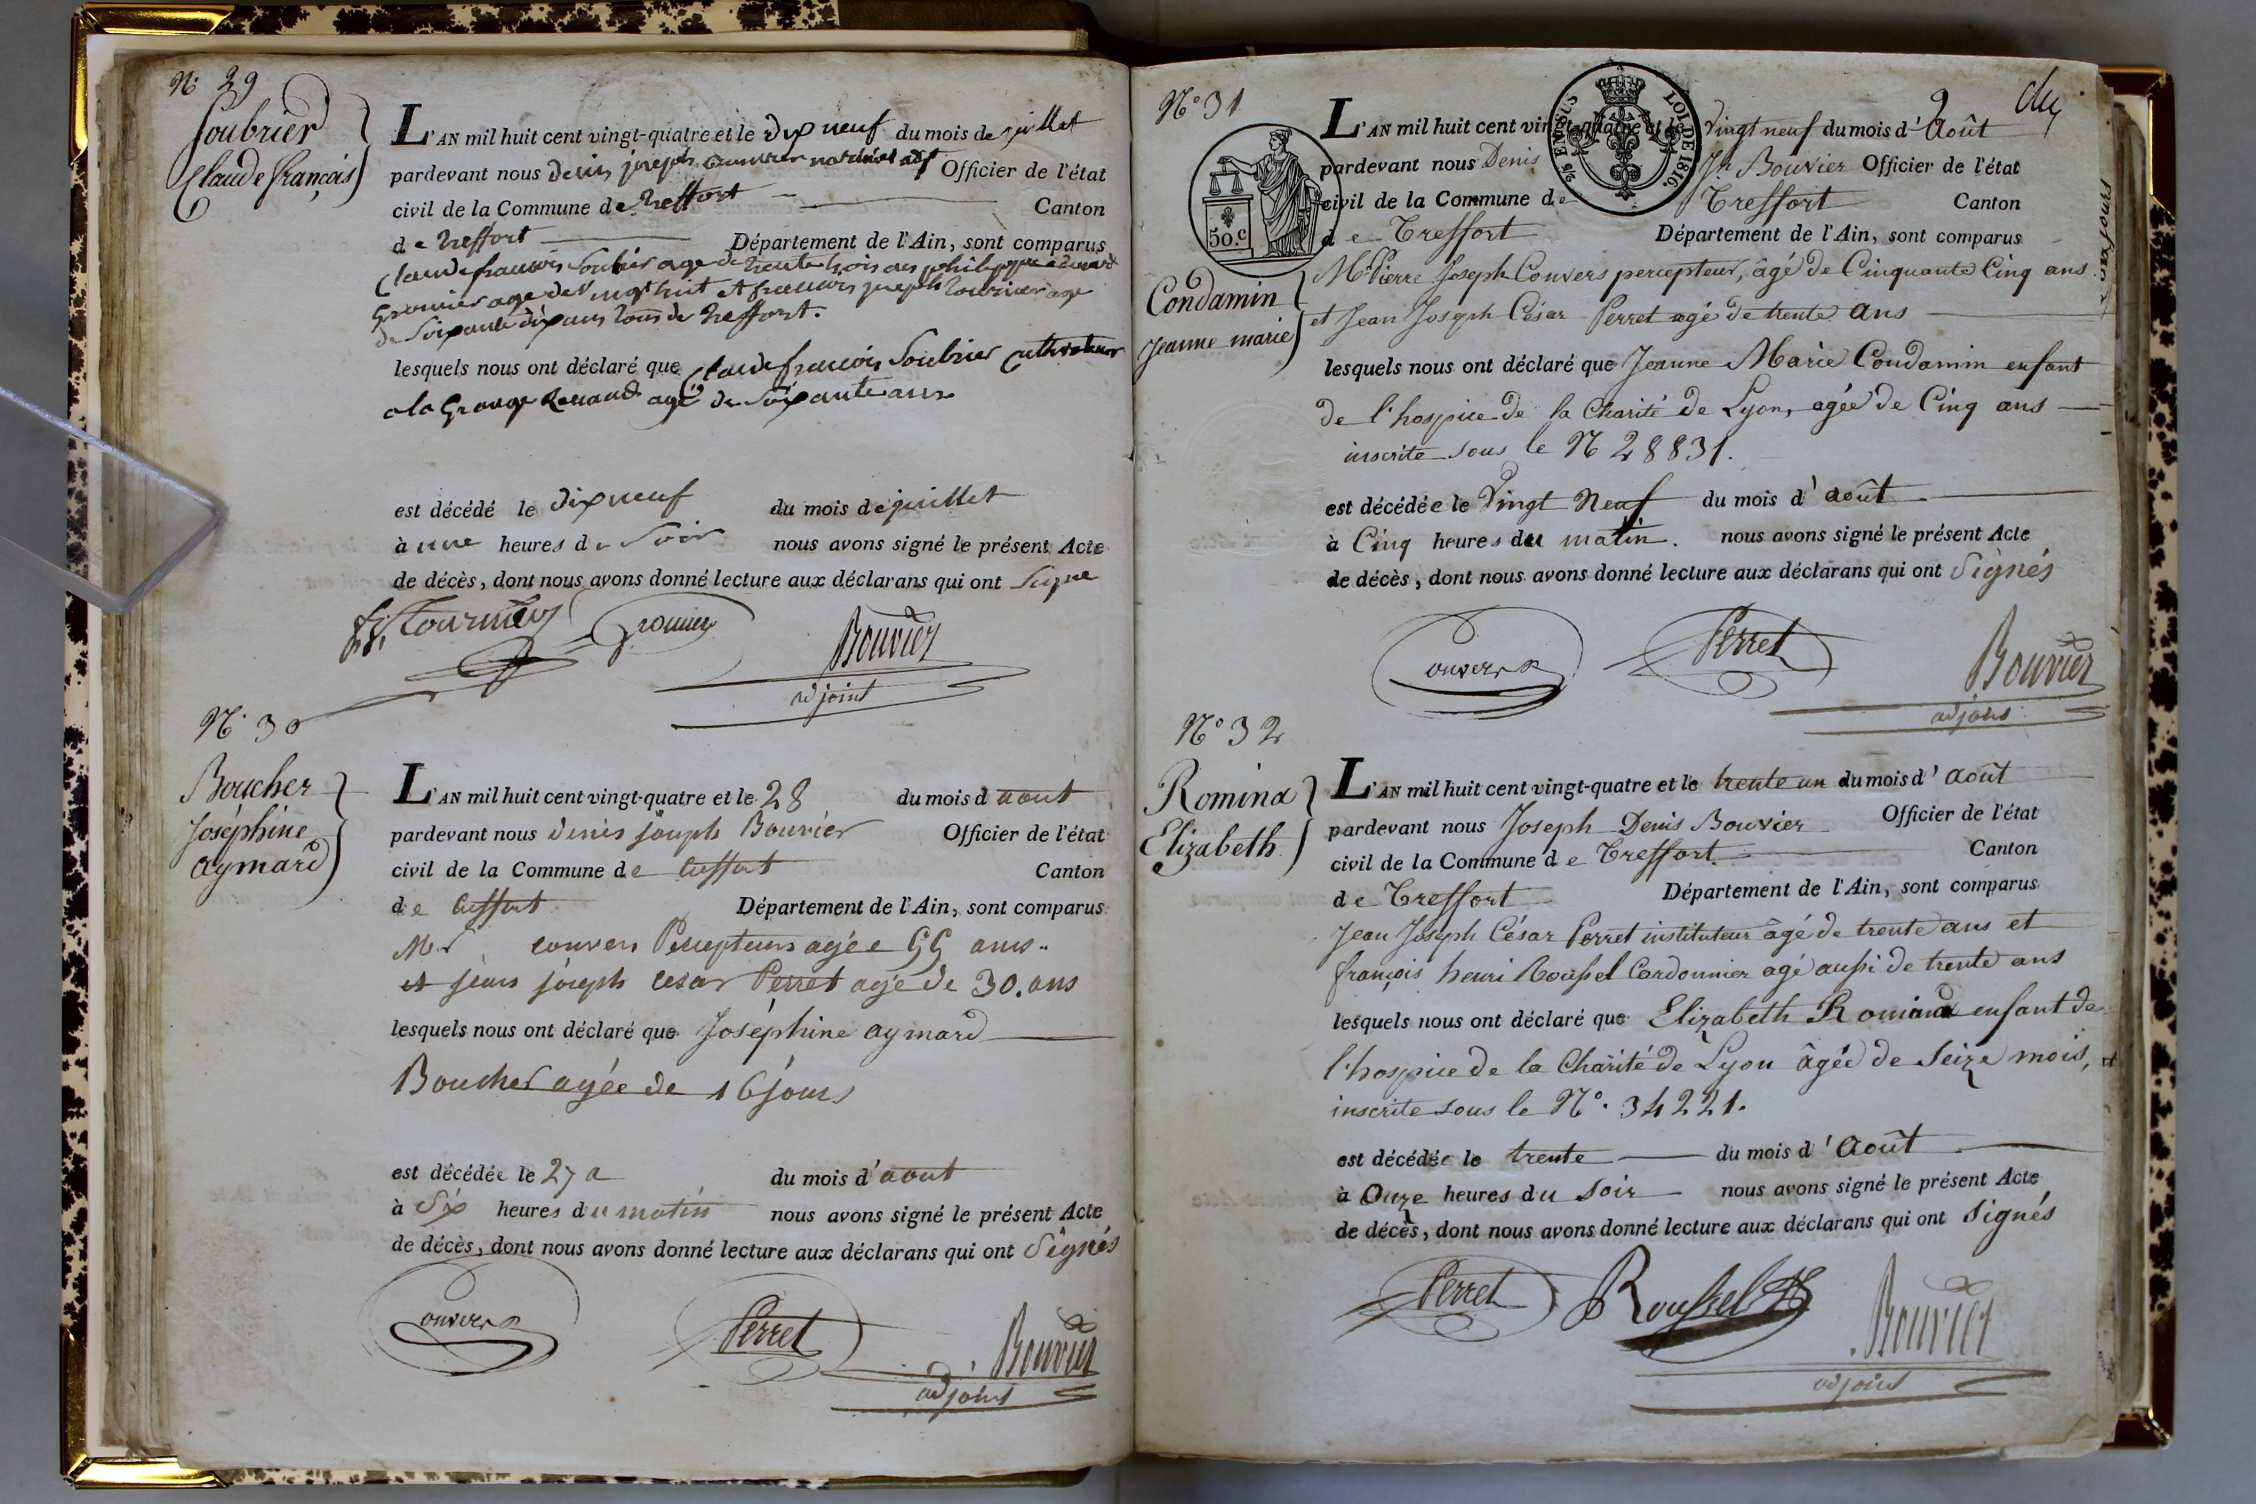 N° 29
Soubrier
Claude françois
L'AN mil huit cent vingt-quatre et le dix neuf du mois de juillet
pardevant nous Denis joseph bouvier Officier de l'état
civil de la Commune de treffort Canton
de treffort Département de l'Ain, sont comparus
Claude francois Soubrier age de trente trois ans philippe edouard
Gromier age de vingt huit et francois joseph tournier age
de Soixante dix ans tous de treffort.
lesquels nous ont déclaré que Claude francois Soubrier Cultivateur
a la Grange Renaud agé de Soixante ans
est décédé le dix neuf du mois de juillet
à une heures du Soir nous avons signé le présent Acte
de décès, dont nous avons donné lecture aux déclarans qui ont Signe
Tournier Gromier Bouvier
adjoint
N° 30
Boucher
Joséphine
aymard
L'AN mil huit cent vingt-quatre et le 28 du mois d aout
pardevant nous denis joseph Bouvier Officier de l'état
civil de la Commune de treffort Canton
de treffort Département de l'Ain, sont comparus
Mr convers Percepteur agée 55 ans
et jean joseph cesar Perret agé de 30. ans
lesquels nous ont déclaré que Joséphine aymard
Boucher agée de 16 jours
est décédée le 27 a du mois d'aout
à Six heures du matin nous avons signé le présent Acte
de décès, dont nous avons donné lecture aux déclarans qui ont Signés
Convers Perret Bouvier
adjoint
N° 31
Condamin
Jeanne marie
50.c
2/5 EN SUS LOI DE 1816.
L'AN mil huit cent vingt-quatre et le Vingt neuf du mois d'Août
pardevant nous Denis Jh Bouvier Officier de l'état
civil de la Commune de Treffort Canton
de Treffort Département de l'Ain, sont comparus
Mr Pierre Joseph Convers percepteur, âgé de Cinquante Cinq ans
et Jean Joseph César Perret agé de trente ans
lesquels nous ont déclaré que Jeanne Marie Condamin enfant
de l'hospice de la Charité de Lyon, agée de Cinq ans
inscrite sous le N 28831.
est décédée le Vingt Neuf du mois d'août
à Cinq heures du matin. nous avons signé le présent Acte
de décès, dont nous avons donné lecture aux déclarans qui ont Signés
Convers Perret Bouvier
adjoint
N° 32
Romina
Elizabeth
L'AN mil huit cent vingt-quatre et le trente un du mois d'août
pardevant nous Joseph Denis Bouvier Officier de l'état
civil de la Commune de Treffort Canton
de Treffort Département de l'Ain, sont comparus
Jean Joseph César Perret instituteur âgé de trente ans et
françois henri Roussel Cordonnier agé aussi de trente ans
lesquels nous ont déclaré que Elizabeth Romina enfant de
l'hospice de la Charité de Lyon âgée de Seize mois, et
inscrite sous le N°. 34221.
est décédée le trente du mois d'Août
à Onze heures du Soir nous avons signé le présent Acte
de décès, dont nous avons donné lecture aux déclarans qui ont Signés
Perret Roussel Bouvier
adjoint